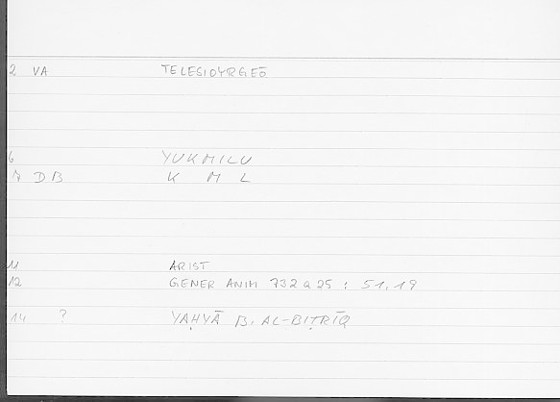 2 VA TELESIOYRGEŌ
6 YUKMILU
7 DB K M L
11 ARIST
12 GENER ANIM 732 a 25 : 51.19
14 ? YAḤYĀ B. AL-BIṬRĪQ